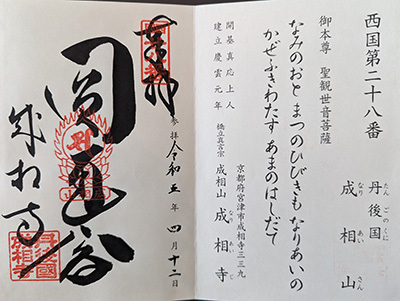 西国第二十八番
丹後国 成相山
たん ごのくに なり あい さん
御本尊 聖観世音菩薩
なみのおと まつのひびきも なりあいの
かぜふきわたす あまのはしだて
開基真応上人
建立慶雲元年
京都府宮津市成相寺三三九
橋立真言宗 成相山 成相寺
なり あい じ
奉拝
参拝 令和五年 四月十二日
成相寺
丹後國
成相寺